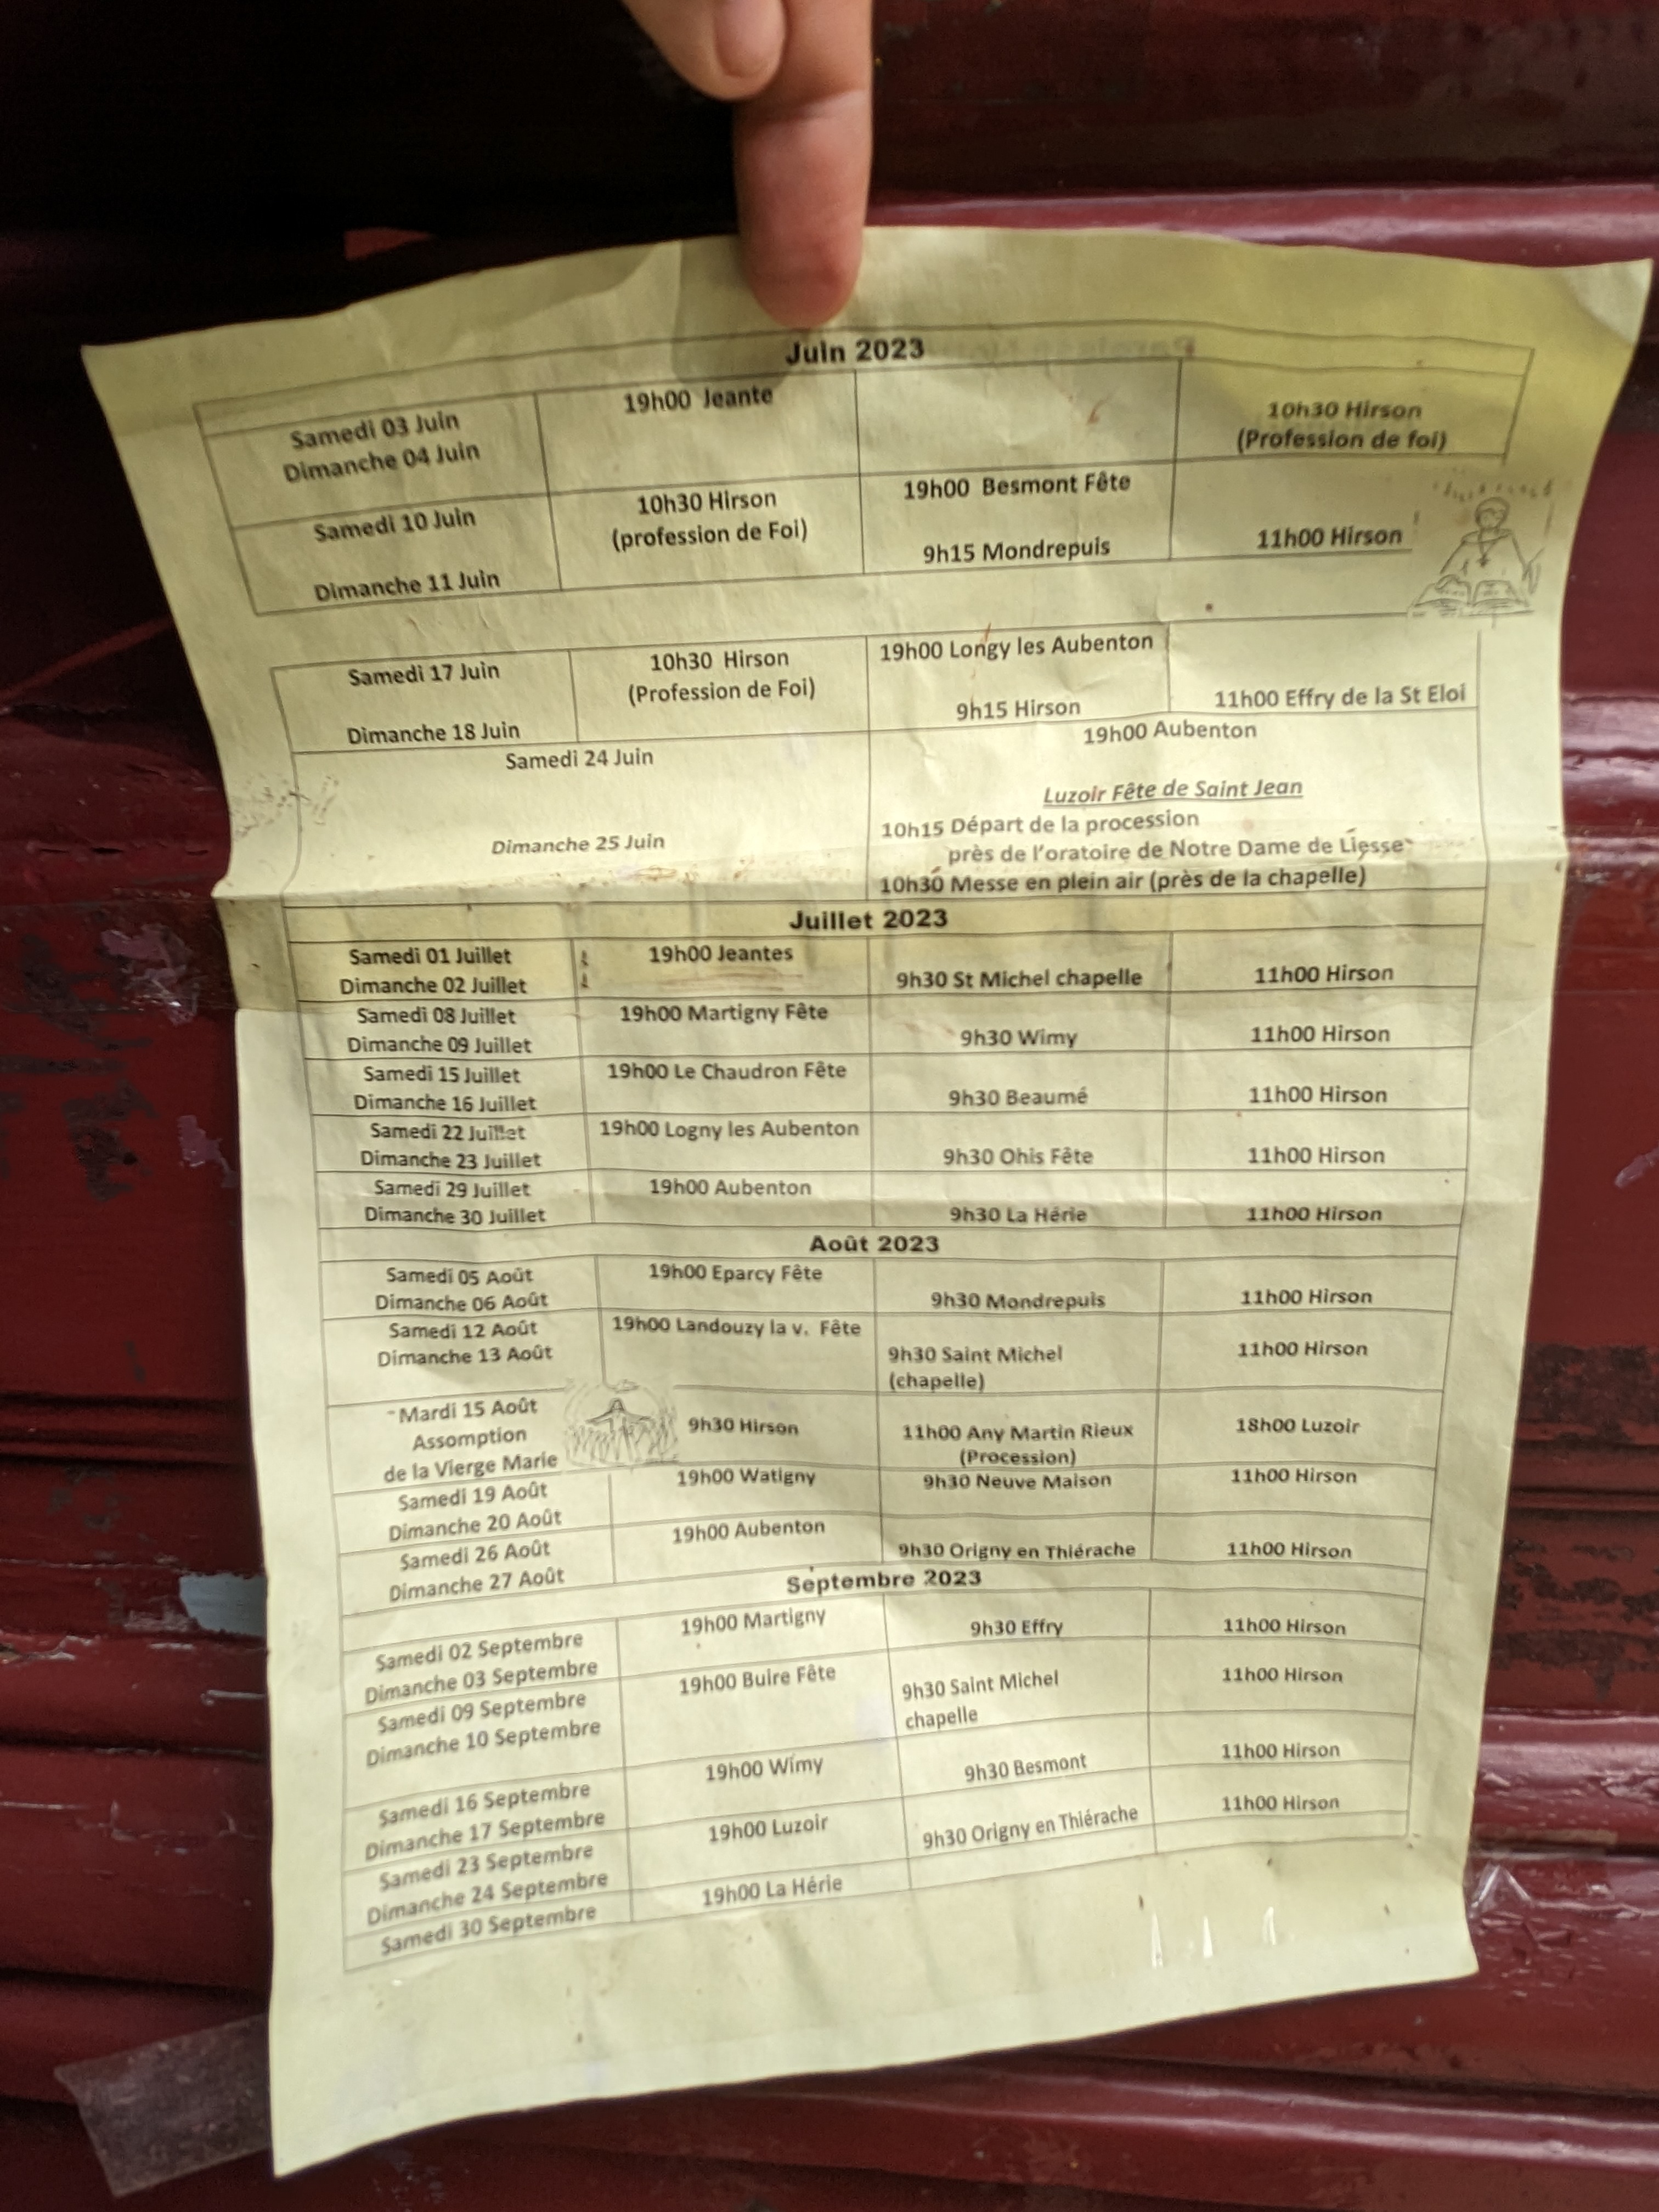 Juin 2023
Samedi 03 Juin
Dimanche 04 Juin
19h00 Jeante
10h30 Hirson
(Profession de foi)
Samedi 10 Juin
Dimanche 11 Juin
10h30 Hirson
(profession de Foi)
19h00 Besmont Fête
9h15 Mondrepuis
11h00 Hirson
Samedi 17 Juin
Dimanche 18 Juin
10h30 Hirson
(Profession de Foi)
19h00 Longy les Aubenton
9h15 Hirson
11h00 Effry de la St Eloi
Samedi 24 Juin
19h00 Aubenton
Dimanche 25 Juin
Luzoir Fête de Saint Jean
10h15 Départ de la procession
près de l'oratoire de Notre Dame de Liesse
10h30 Messe en plein air (près de la chapelle)
Juillet 2023
Samedi 01 Juillet
Dimanche 02 Juillet
19h00 Jeantes
9h30 St Michel chapelle
11h00 Hirson
Samedi 08 Juillet
Dimanche 09 Juillet
19h00 Martigny Fête
9h30 Wimy
11h00 Hirson
Samedi 15 Juillet
Dimanche 16 Juillet
19h00 Le Chaudron Fête
9h30 Beaumé
11h00 Hirson
Samedi 22 Juillet
Dimanche 23 Juillet
19h00 Logny les Aubenton
9h30 Ohis Fête
11h00 Hirson
Samedi 29 Juillet
Dimanche 30 Juillet
19h00 Aubenton
9h30 La Hérie
11h00 Hirson
Août 2023
Samedi 05 Août
Dimanche 06 Août
19h00 Eparcy Fête
9h30 Mondrepuis
11h00 Hirson
Samedi 12 Août
Dimanche 13 Août
19h00 Landouzy la v. Fête
9h30 Saint Michel
(chapelle)
11h00 Hirson
Mardi 15 Août
Assomption
de la Vierge Marie
9h30 Hirson
11h00 Any Martin Rieux
(Procession)
18h00 Luzoir
Samedi 19 Août
Dimanche 20 Août
19h00 Watigny
9h30 Neuve Maison
11h00 Hirson
Samedi 26 Août
Dimanche 27 Août
19h00 Aubenton
9h30 Origny en Thiérache
11h00 Hirson
Septembre 2023
Samedi 02 Septembre
Dimanche 03 Septembre
19h00 Martigny
9h30 Effry
11h00 Hirson
Samedi 09 Septembre
Dimanche 10 Septembre
19h00 Buire Fête
9h30 Saint Michel
chapelle
11h00 Hirson
Samedi 16 Septembre
Dimanche 17 Septembre
19h00 Wimy
9h30 Besmont
11h00 Hirson
Samedi 23 Septembre
Dimanche 24 Septembre
19h00 Luzoir
9h30 Origny en Thiérache
11h00 Hirson
Samedi 30 Septembre
19h00 La Hérie